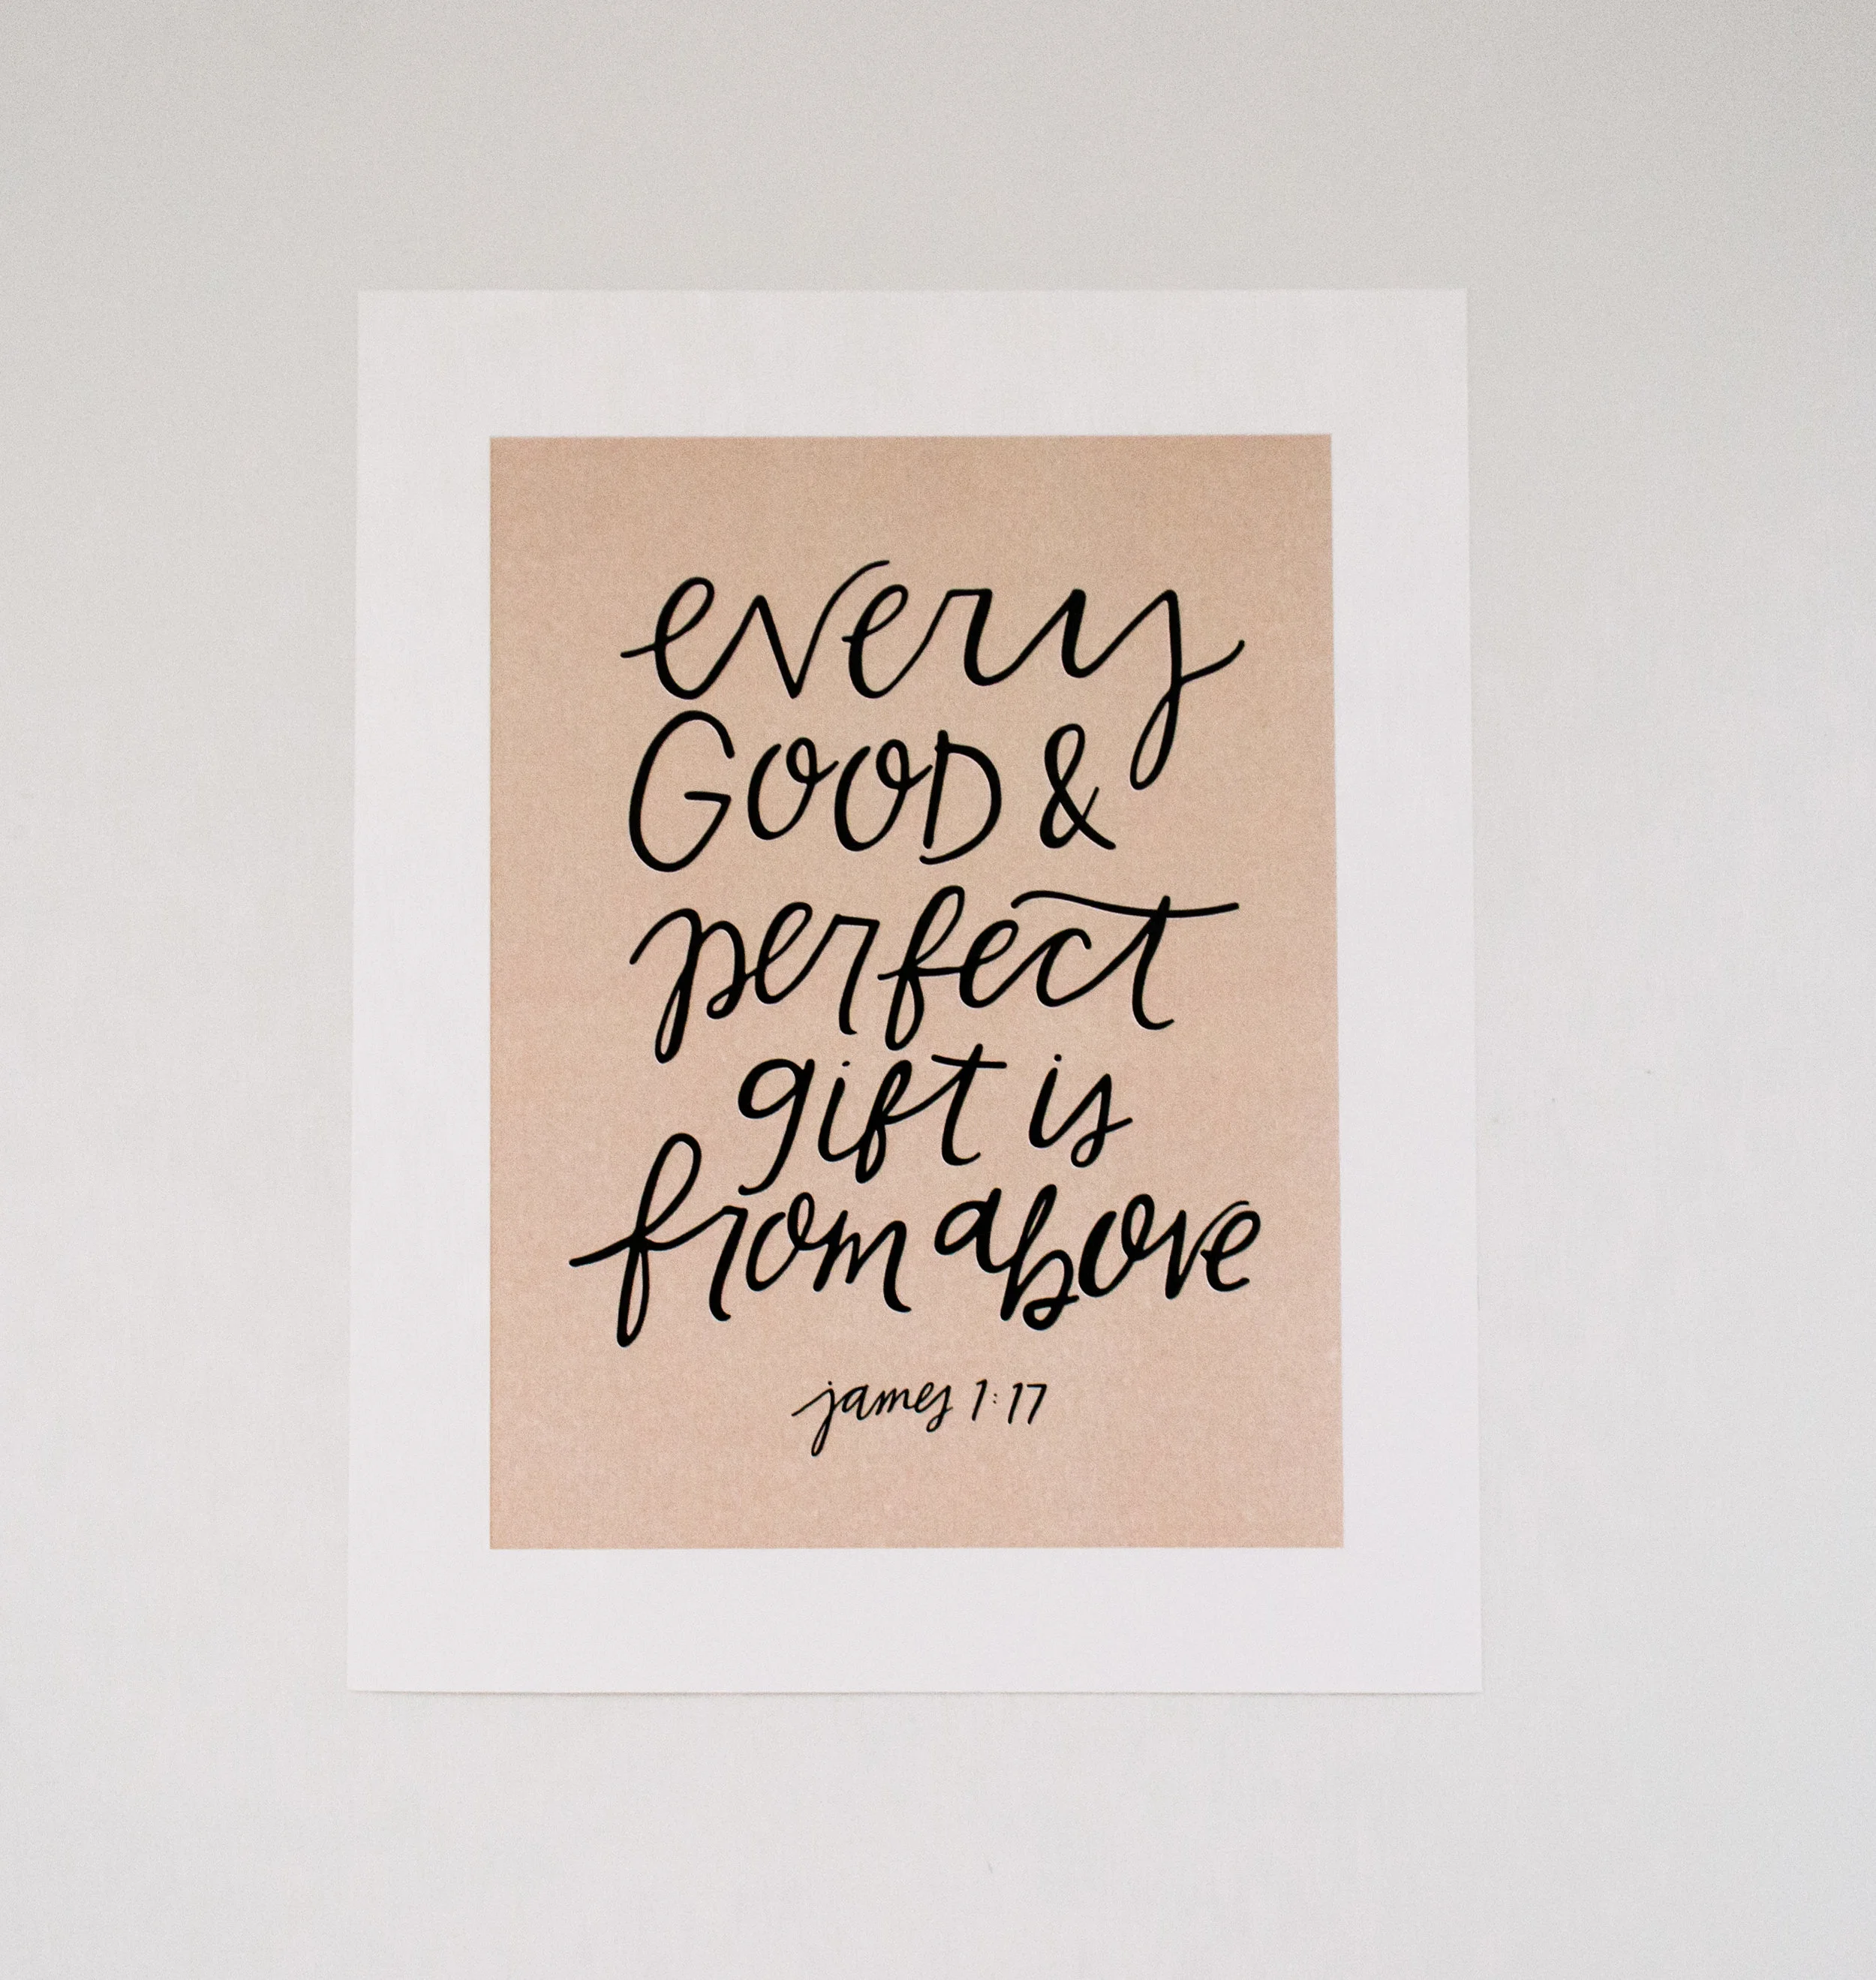 every
GOOD &
perfect
gift is
from above
james 1:17